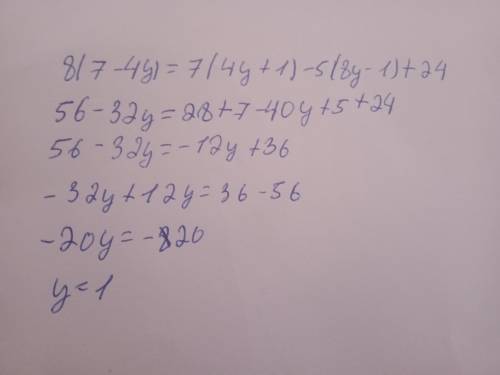 8(7-4y)=7(4y+1)-5(8y-1)+24
56-32y=28+7-40y+5+24
56-32y=-12y+36
-32y+12y=36-56
-20y=-20
y=1